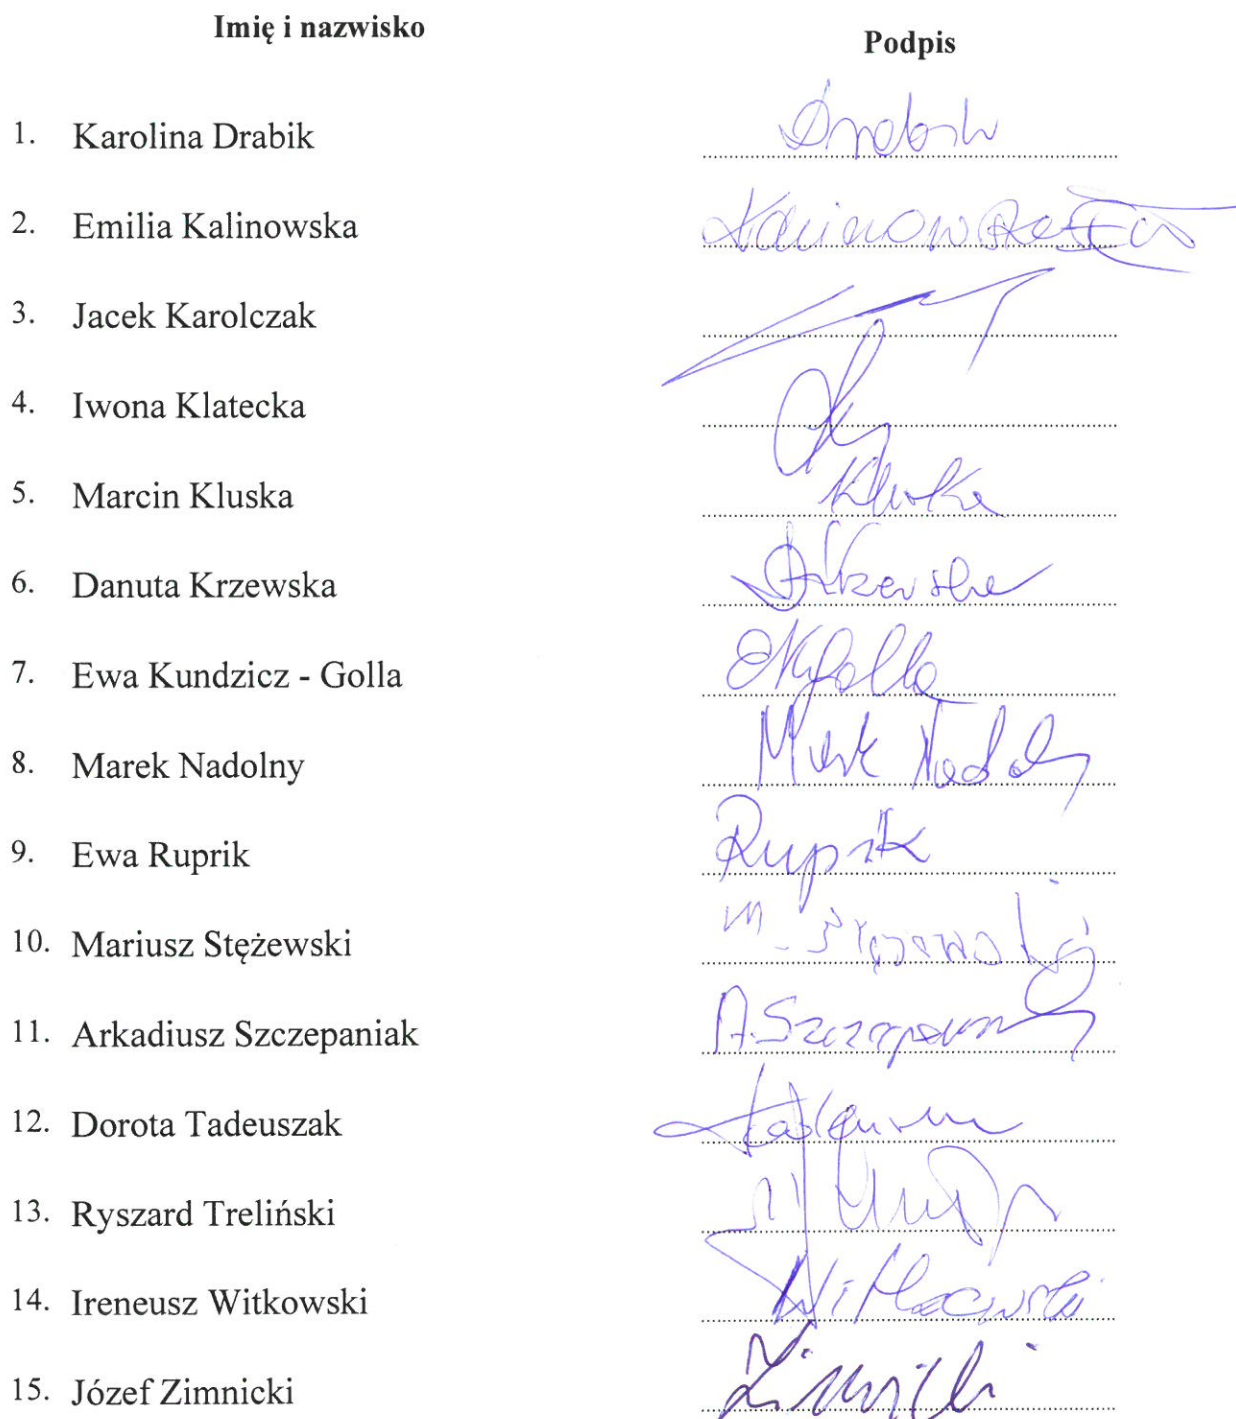 Imię i nazwisko Podpis
1. Karolina Drabik
2. Emilia Kalinowska Kalinowska
3. Jacek Karolczak
4. Iwona Klatecka
5. Marcin Kluska Kluska
6. Danuta Krzewska DKrzewska
7. Ewa Kundzicz - Golla
8. Marek Nadolny Marek Nadolny
9. Ewa Ruprik Ruprik
10. Mariusz Stężewski M. Stężewski
11. Arkadiusz Szczepaniak A. Szczepaniak
12. Dorota Tadeuszak
13. Ryszard Treliński
14. Ireneusz Witkowski Witkowski
15. Józef Zimnicki Zimnicki